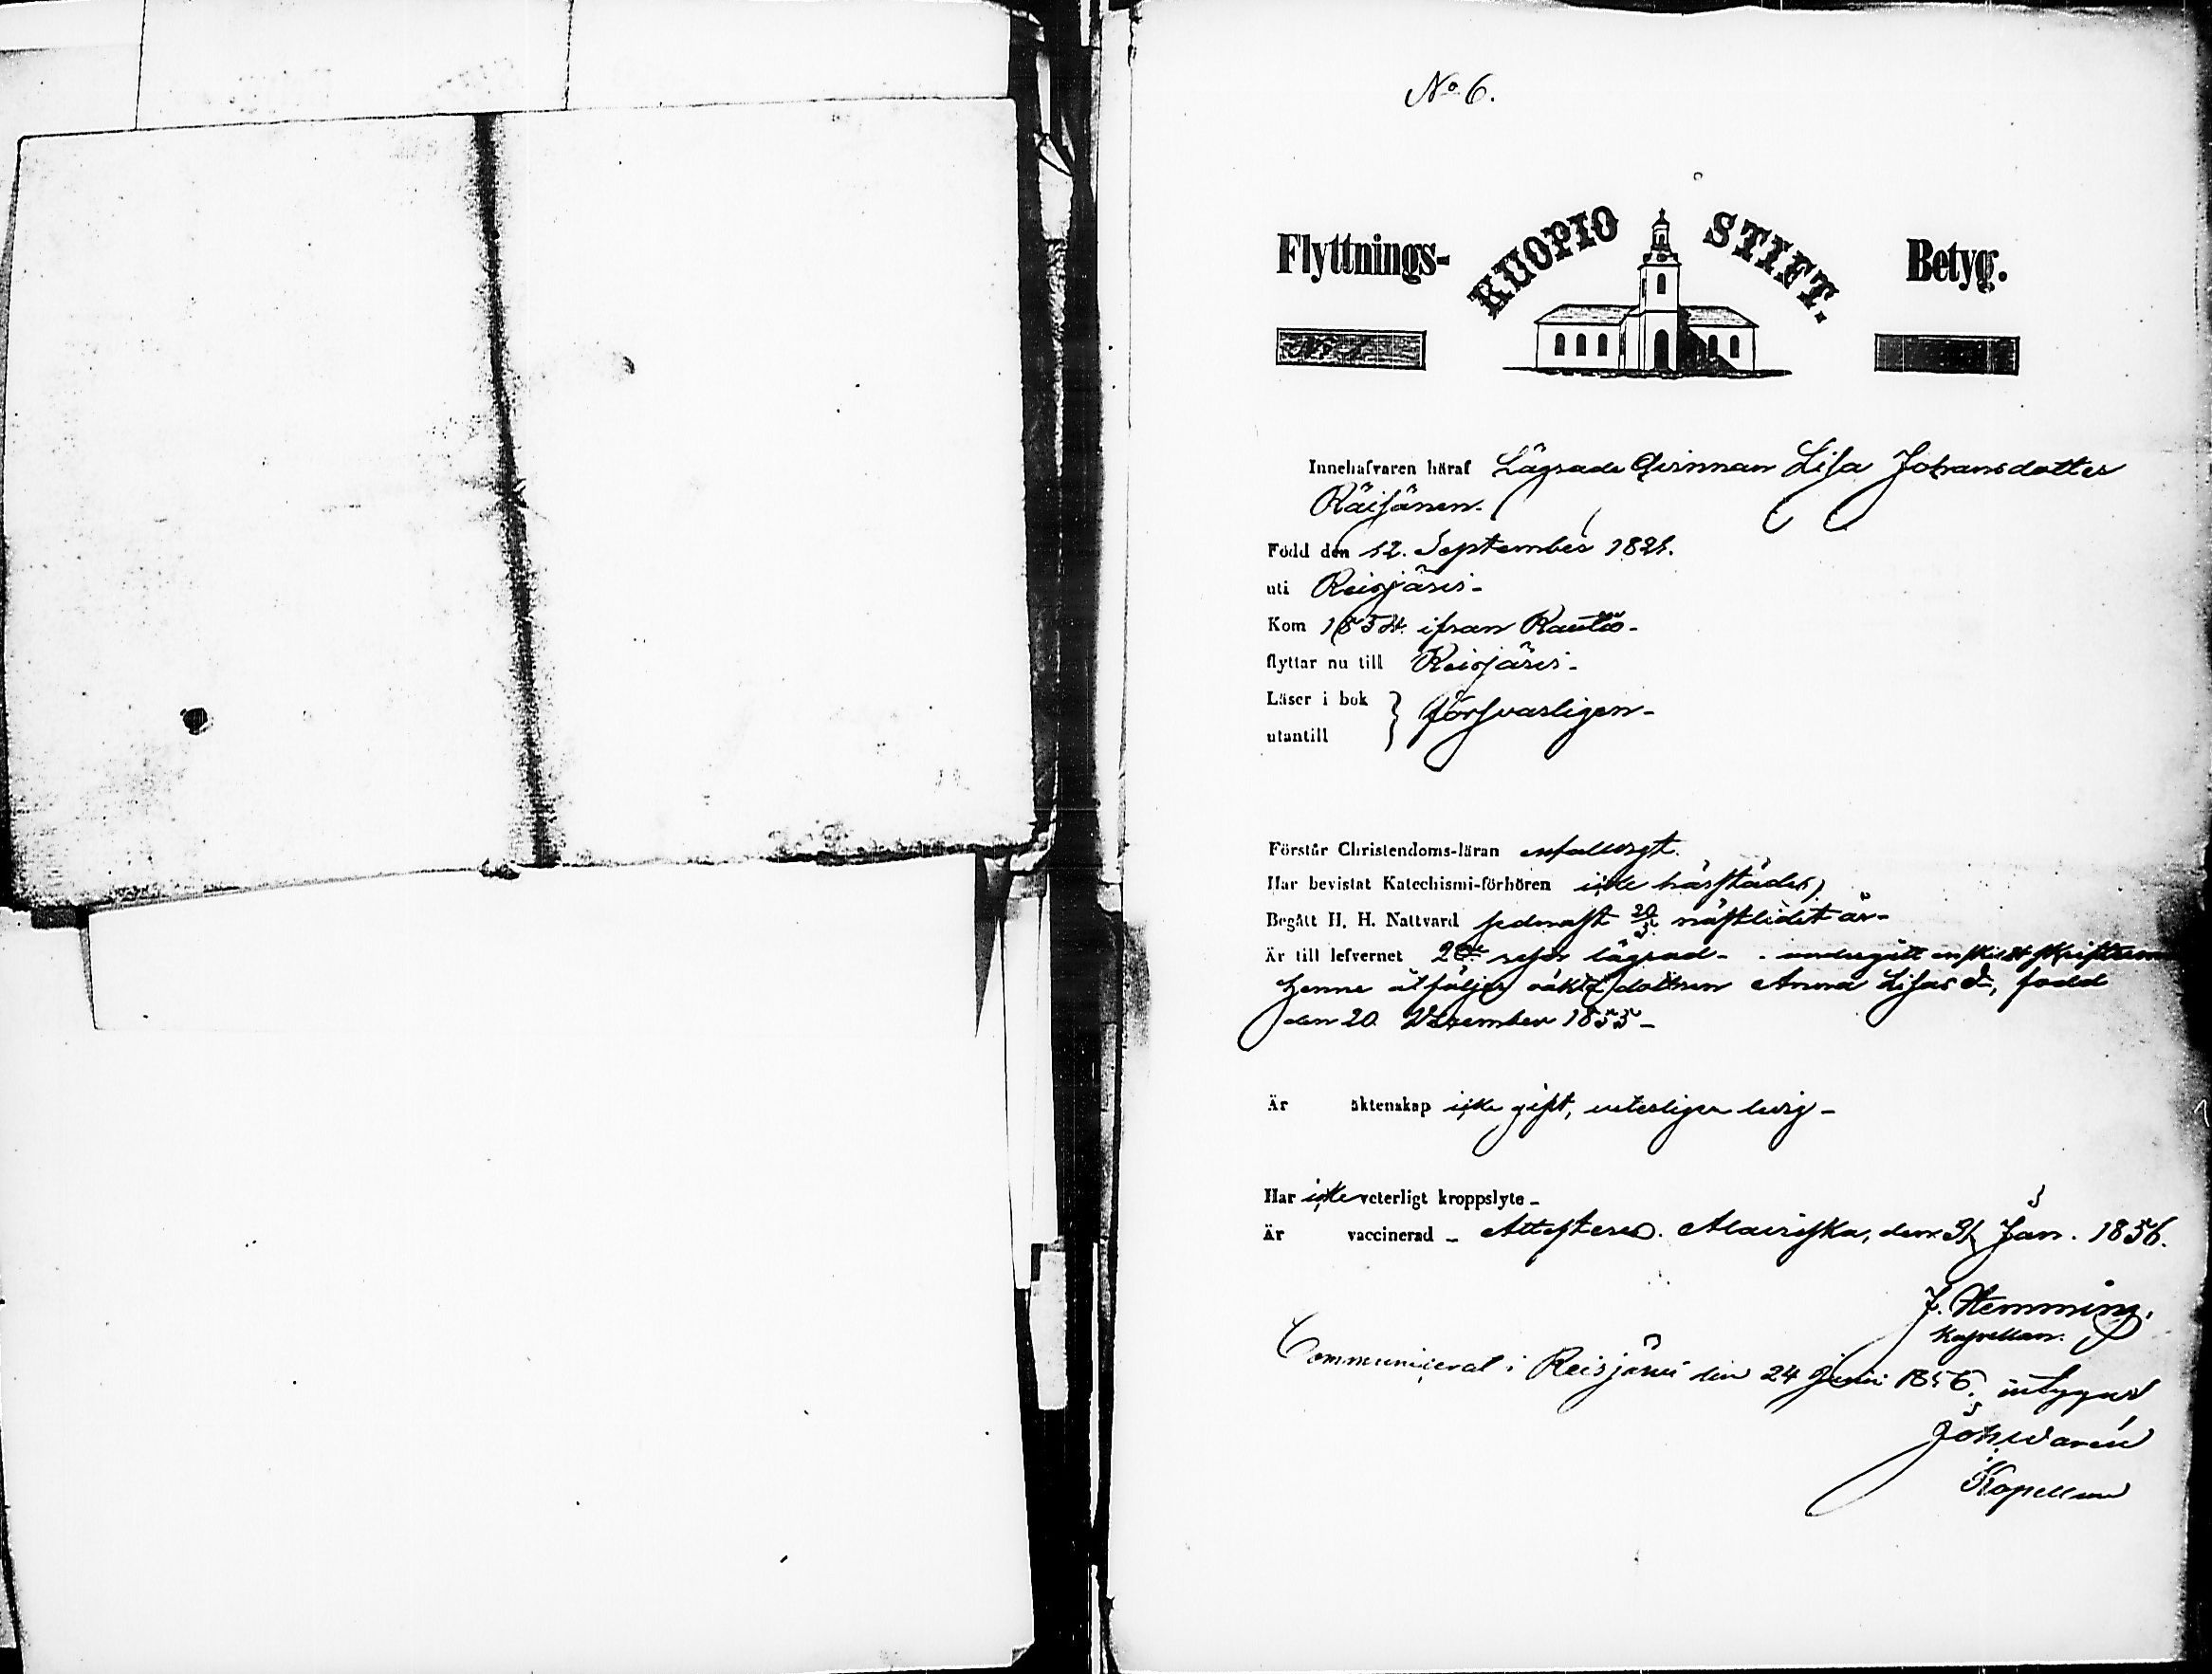 No 6.
Flyttnings- KUOPIO STIFT. Betyg.
Innehafvaren häraf Lägrade Qvinnan Lisa Johansdotter
Räisänen.
Född den 12. September 1821.
uti Reisjärvi -
Kom 1854. ifrån Rautio -
flyttar nu till Reisjärvi -
Läser i bok } försvarligen -
utantill
Förstår Christendoms-läran enfaldigt.
Har bevistat Katechismi-förhören icke härstädes,
Begått H. H. Nattvard sednast 20/5 nästlidit år -
Är till lefvernet 2ne resor lägrad - undergått enskildt skriftermål
henne åtföljer oäkta dottren Anna Lisasdr, född
den 20 December 1855 -
Är äktenskap icke gift, veterligen ledig -
Har icke veterligt kroppslyte -
Är vaccinerad - Attesteras. Alavieska, den 31 Jan. 1856.
J. Hemming.
Kapellan.
Communicerat i Reisjärvi den 24 Juni 1856, intygar
Joh Warén
Kapellan